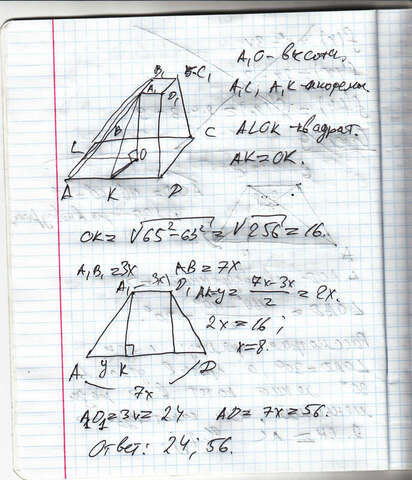 B₁ C₁ A₁ D₁
A₁O - высота.
A₁L, A₁K - апофемы
ALOK - квадрат.
AK = OK.
L B O C
A K D
OK = √65² - 63² = √256 = 16.
A₁B₁ = 3x AB = 7x
A₁ 3x D₁ AK = y = 7x - 3x / 2 = 2x.
2x = 16;
x = 8.
A y K D
7x
A₁D₁ = 3x = 24 AD = 7x = 56.
Ответ: 24; 56.